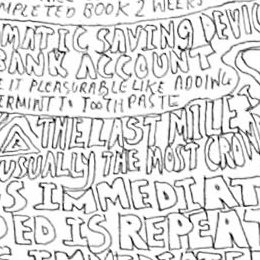 MPLETED BOOK 2 WEEKS
MATIC SAVING DEVIC
BANK ACCOUNT
E IT PLEASURABLE LIKE ADDING
ERMINT TO TOOTHPASTE
THE LAST MILE IS
USUALLY THE MOST CROW
S IMMEDIAT
DED IS REPEAT
IMMEDIATE